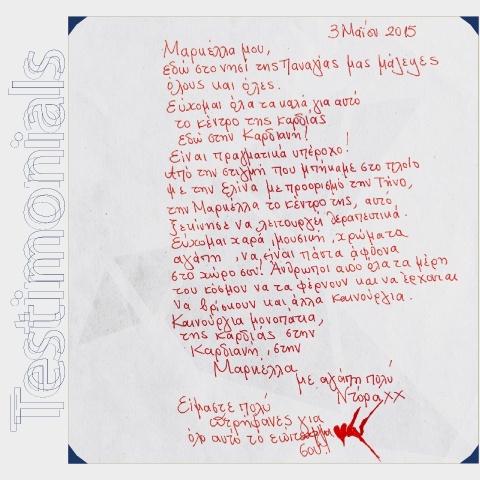 Testimonials
3 Μαΐου 2015
Μαρκέλλα μου,
εδώ στο νησί της Παναγίας μας μάγεψες
όλους και όλες.
Εύχομαι όλα τα καλά για αυτό
το κέντρο της καρδιάς
εδώ στην Καρδιανή!
Είναι πραγματικά υπέροχο!
Από την στιγμή που μπήκαμε στο πλοίο
με την Ελίνα με προορισμό την Τήνο,
την Μαρκέλλα το κέντρο της, αυτό
ξεκίνησε να λειτουργεί θεραπευτικά.
Εύχομαι χαρά, μουσική, χρώματα
αγάπη, να είναι πάντα άφθονα
στο χώρο σου. Άνθρωποι από όλα τα μέρη
του κόσμου να τα φέρνουν και να έρχονται
να βρίσκουν και άλλα καινούργια.
Καινούργια μονοπάτια,
της καρδιάς στην
Καρδιανή, στην
Μαρκέλλα
με αγάπη πολύ
Ντόρα xx
Είμαστε πολύ
υπερήφανες για
όλο αυτό το
σου!